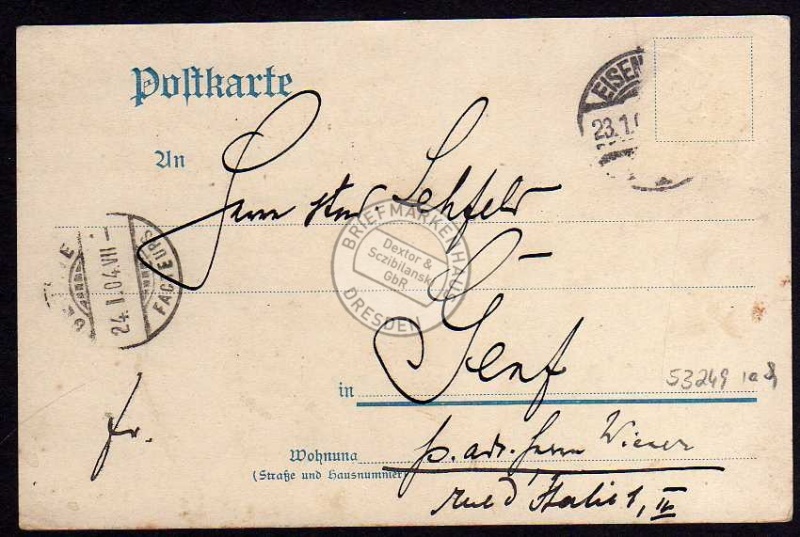 Postkarte
EISEN
23.1.0
An
Herrn stud Lehfeld
BRIEFMARKENHAUS
Dextor &
Sczibilanski
GbR
DRESDEN
FACTEURS
24.I.04.VII-
Genf
in
53249
fr.
Wohnung
(Straße und Hausnummer)
p. adr. Herrn Wiener
Rue d'Italie 1, II